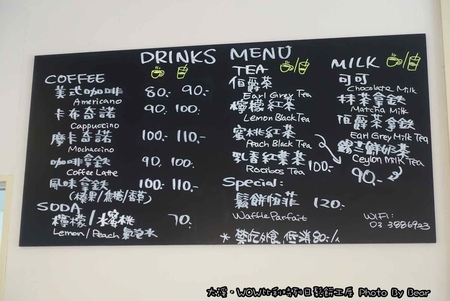 DRINKS MENU
COFFEE
美式咖啡 80.- 90.-
Americano
卡布奇諾 90.- 100.-
Cappuccino
摩卡奇諾 100.- 110.-
Mochaccino
咖啡拿鐵 90.- 100.-
Coffee Latte
風味拿鐵 100.- 110.-
(榛果/焦糖/香草)
SODA
檸檬/水蜜桃 70.-
Lemon/Peach 氣泡水
TEA
伯爵茶
Earl Grey Tea
檸檬紅茶
Lemon Black Tea
蜜桃紅茶
Peach Black Tea
乳香紅葉茶 100.-
Rooibos Tea
Special:
鬆餅伯菲 120.-
Waffle Parfait
* 禁吃外食, 低消80.-/人
MILK
可可
Chocolate Milk
抹茶拿鐵
Matcha Milk
伯爵茶拿鐵
Earl Grey Milk Tea
錫蘭鮮奶茶
Ceylon Milk Tea
90.-
WIFI:
03 3886923
大溪‧WOW比利時列日鬆餅工房 Photo By Bear